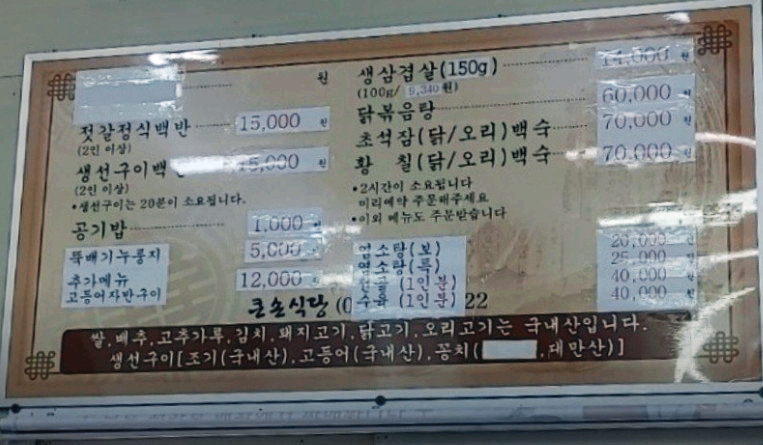 원
젓갈정식백반 15,000 원
(2인 이상)
생선구이백반 15,000 원
(2인 이상)
•생선구이는 20분이 소요됩니다.
공기밥 1,000
뚝배기누룽지 5,000 원
추가메뉴
고등어자반구이 12,000
생삼겹살(150g) 14,000 원
(100g/ 9,340 원)
닭볶음탕 60,000
초석잠(닭/오리)백숙 70,000
황 칠(닭/오리)백숙 70,000
•2시간이 소요됩니다
미리예약 주문해주세요
•이외 메뉴도 주문받습니다
염소탕(보) 20,000
염소탕(특) 25,000
(1인분) 40,000
수육 (1인분) 40,000
큰손식당 (0 22
쌀,배추,고추가루,김치,돼지고기,닭고기,오리고기는 국내산입니다.
생선구이[조기(국내산),고등어(국내산),꽁치( ,대만산)]